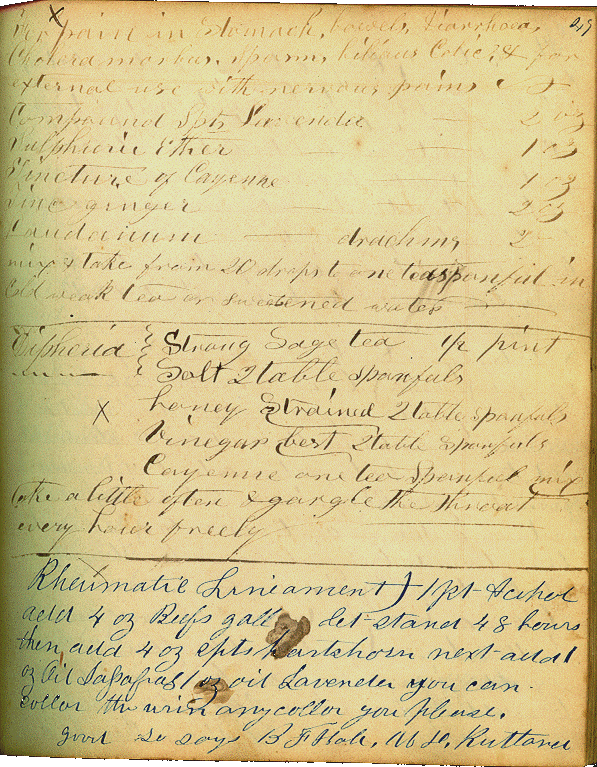 249
For pain in Stomach, bowels, Diarrhoea,
Cholera morbus, spasms, bilious Colic, & for
external use with nervous pains
Compound Spts Lavender 2 oz
Sulphuric Ether 1 oz
Tincture of Cayenne 1 oz
Tinc ginger 2 oz
Laudanum drachms 2
mix & take from 20 drops to one teaspoonful in
Cold weak tea or sweetened water
Dipheria Strong Sage tea 1/2 pint
Salt 2 table sponfuls
honey Strained 2 table sponfuls
Vinegar best 2 table sponfuls
Cayenne one tea sponful mix
take a little often & gargle the throat
every hour freely
Rheumatic Lineament) 1 pt
add 4 oz Beefs gall let stand 48 hours
then add 4 oz spts hartshorn next add 1
oz Oil Sasafras 1 oz oil Lavender you can
collor the urin any collor you please.
good so says B F M. D. Rutland